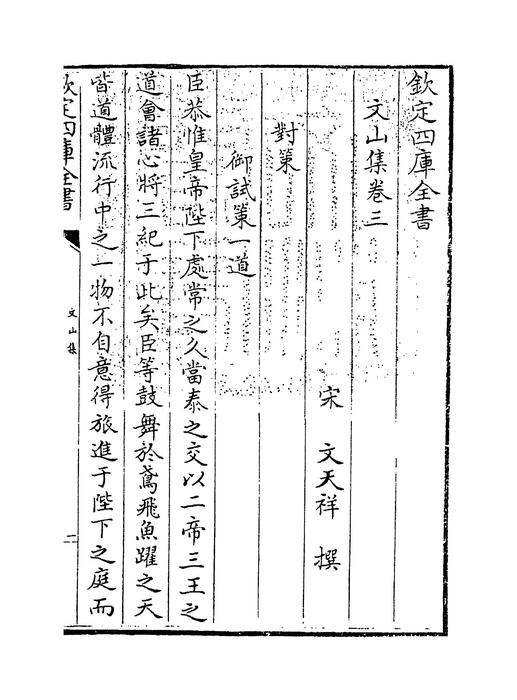 欽定四庫全書
文山集卷三
宋 文天祥 撰
對策
御試策一道
臣恭惟皇帝陛下處常之久當泰之交以二帝三王之
道會諸心將三紀于此矣臣等鼓舞於鳶飛魚躍之天
皆道體流行中之一物不自意得旅進于陛下之庭而
欽定四庫全書
文山集